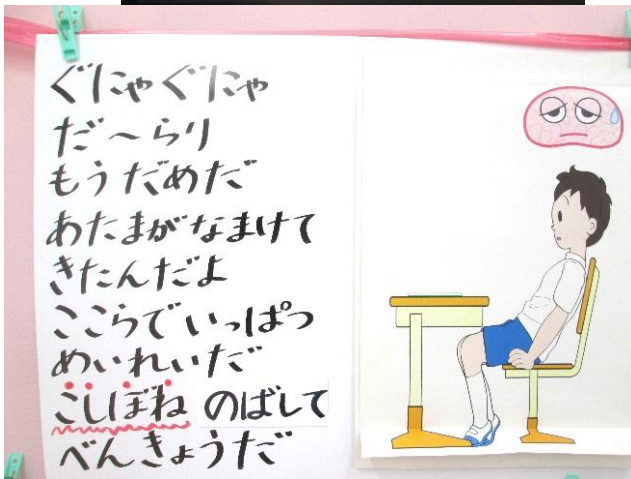 ぐにゃぐにゃ
だ〜らり
もうだめだ
あたまがなまけて
きたんだよ
ここらでいっぱつ
めいれいだ
こしぼね のばして
べんきょうだ